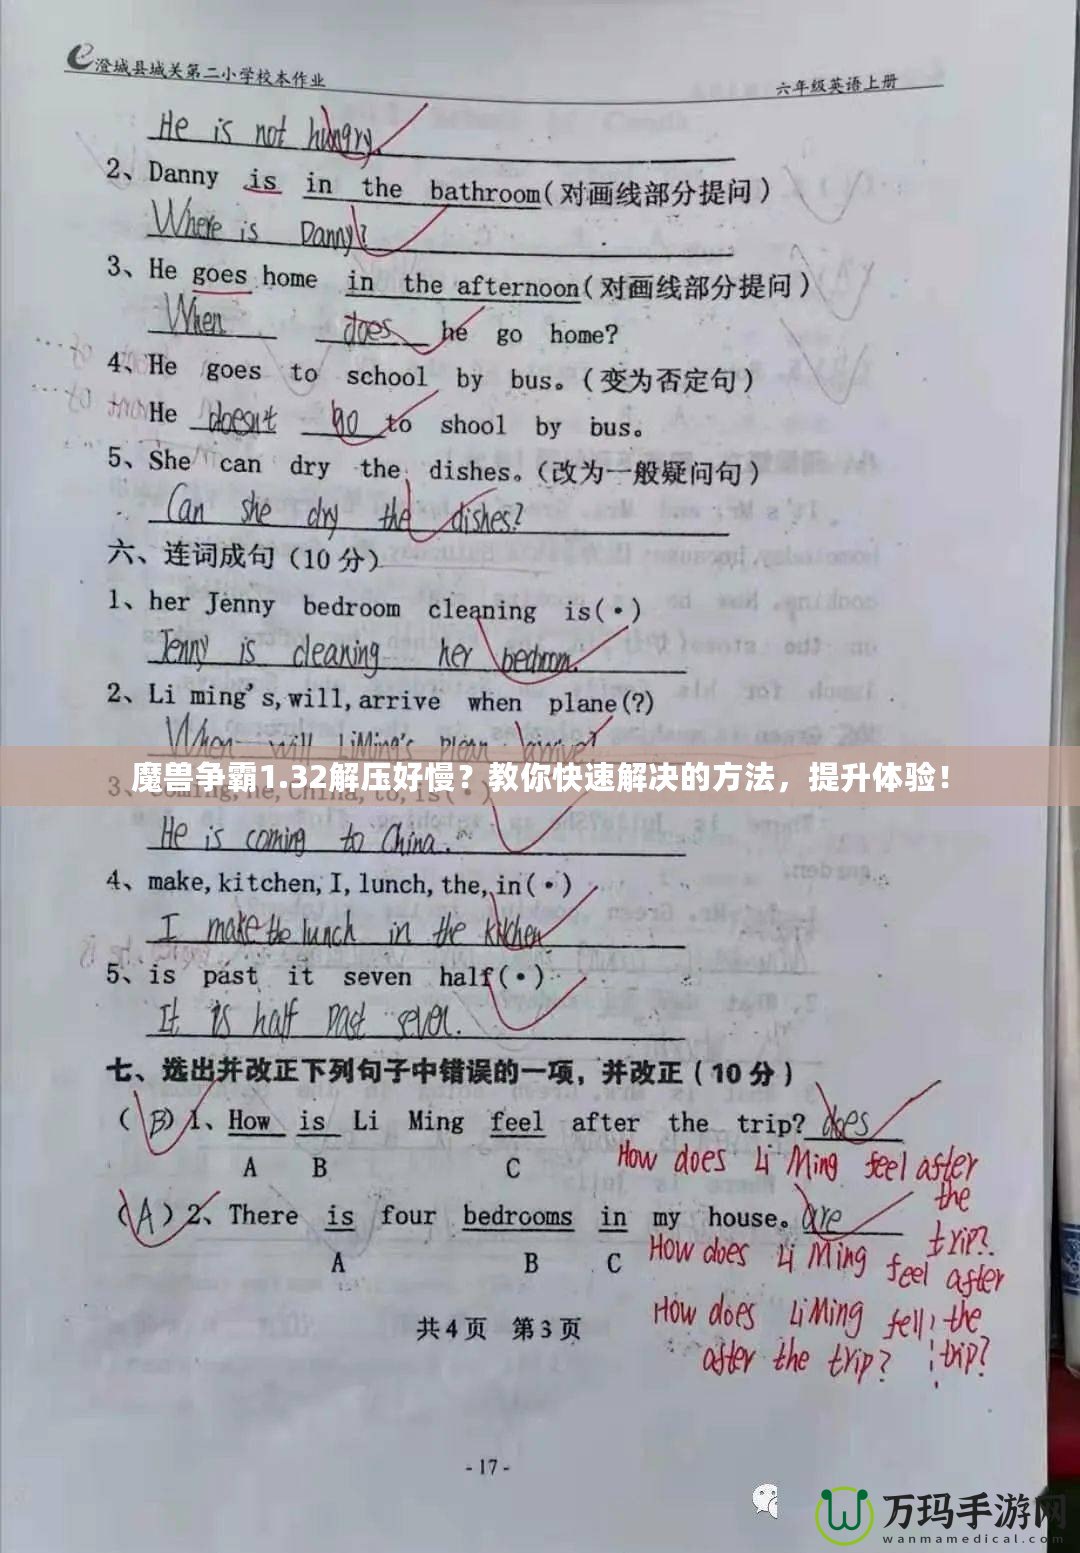 澄城县城关第二小学校本作业 六年级英语上册
He is not hungry.
2、Danny is in the bathroom(对画线部分提问)
Where is Danny?
3、He goes home in the afternoon(对画线部分提问)
When does he go home?
4、He goes to school by bus。(变为否定句)
He doesn't go to shool by bus。
5、She can dry the dishes。(改为一般疑问句)
Can she dry the dishes?
六、连词成句(10分)
1、her Jenny bedroom cleaning is(·)
Jenny is cleaning her bedroom.
2、Li ming's,will,arrive when plane(?)
When will LiMing's plean arrive?
魔兽争霸1.32解压好慢?教你快速解决的方法,提升体验!
3、Coming,he,China,to,is(·)
He is coming to China.
4、make,kitchen,I,lunch,the,in(·)
I make the lunch in the kitchen
5、is past it seven half(·)
It is half past seven.
七、选出并改正下列句子中错误的一项,并改正(10分)
(B)1、How is Li Ming feel after the trip? does
A B C
How does Li Ming feel after the trip?
(A)2、There is four bedrooms in my house。are
A B C
How does Li Ming feel after the trip?
How does LiMing fell after the trip?
共4页 第3页
-17-
万玛手游网
wanmamedical.com